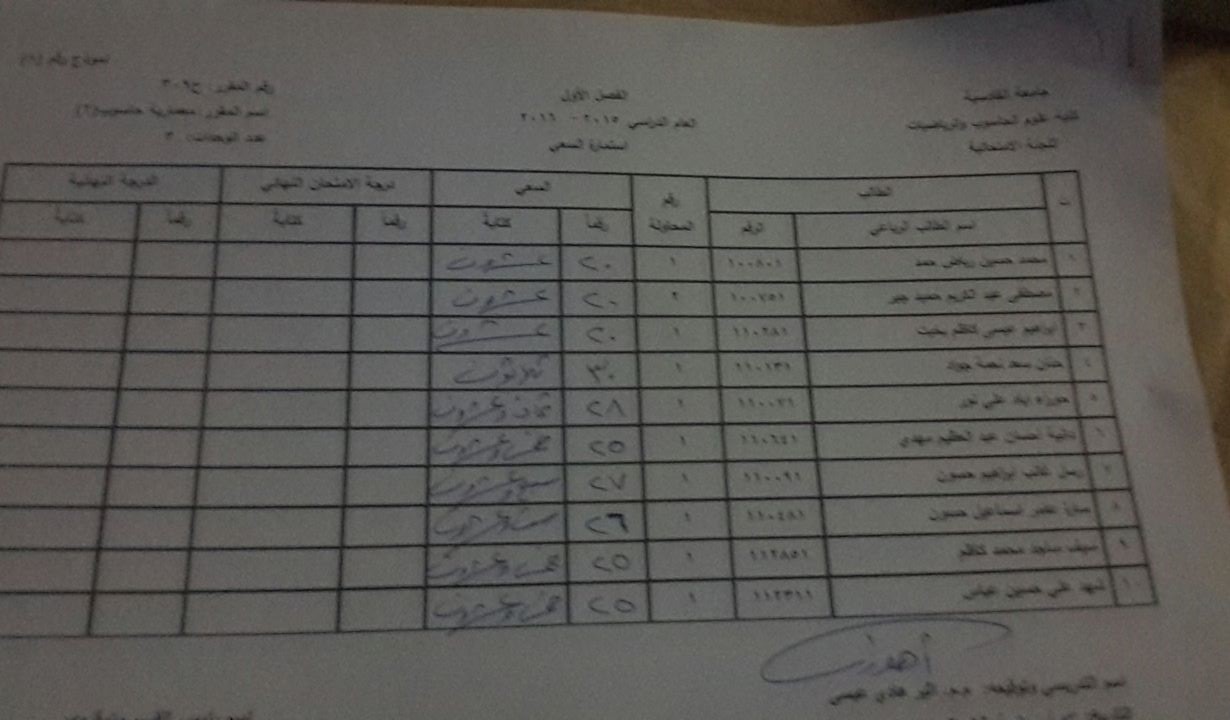 نموذج رقم (٨)
جامعة القادسية
كلية علوم الحاسوب والرياضيات
اللجنة الامتحانية
الفصل الأول
العام الدراسي ٢٠١٥ - ٢٠١٦
استمارة السعي
رقم المقرر: ح٣٠٩
اسم المقرر: معمارية حاسوب(٢)
عدد الوحدات: ٣
ت الطالب رقم المحاولة السعي درجة الامتحان النهائي الدرجة النهائية
اسم الطالب الرباعي الرقم رقماً كتابة رقماً كتابة رقماً كتابة
١ محمد حسين رياض حمد ١٠٠٨٠١ ١ ٢٠ عشرون
٢ مصطفى عبد الكريم حميد جبر ١٠٠٧٥١ ٢ ٢٠ عشرون
٣ ابراهيم عيسى كاظم بخيت ١ ٢٠ عشرون
٤ حنان سعد نعمة جواد ١١٠١٣١ ١ ٣٠ ثلاثون
٥ اياد علي نور ١ ٢٨ ثمان وعشرون
٦ دانية احسان عبد العظيم مهدي ١١٠٦٤١ ١ ٢٥ خمس وعشرون
٧ رسل غالب ابراهيم حسون ١١٠٠٩١ ١ ٢٧ سبع وعشرون
٨ سارة عامر اسماعيل حسون ١١٠٤٨١ ١ ٢٦ ست وعشرون
٩ سيف ساجد محمد كاظم ١١٢٨٥١ ١ ٢٥ خمس وعشرون
١٠ شهد علي حسين عباس ١١٢٣١١ ١ ٢٥ خمس وعشرون
اسم التدريسي وتوقيعه: م.م. اثير هادي عيسى